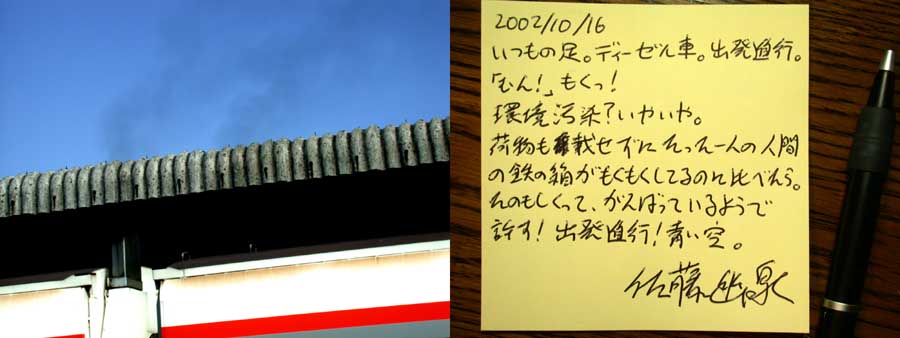 2002/10/16
いつもの足。ディーゼル車。出発進行。
「むん!」もくっ!
環境汚染?いやいや。
荷物も載せずにたった一人の人間
の鉄の箱がもくもくしてるのに比べたら。
たのもしくって、がんばっているようで
許す!出発進行!青い空。
佐藤